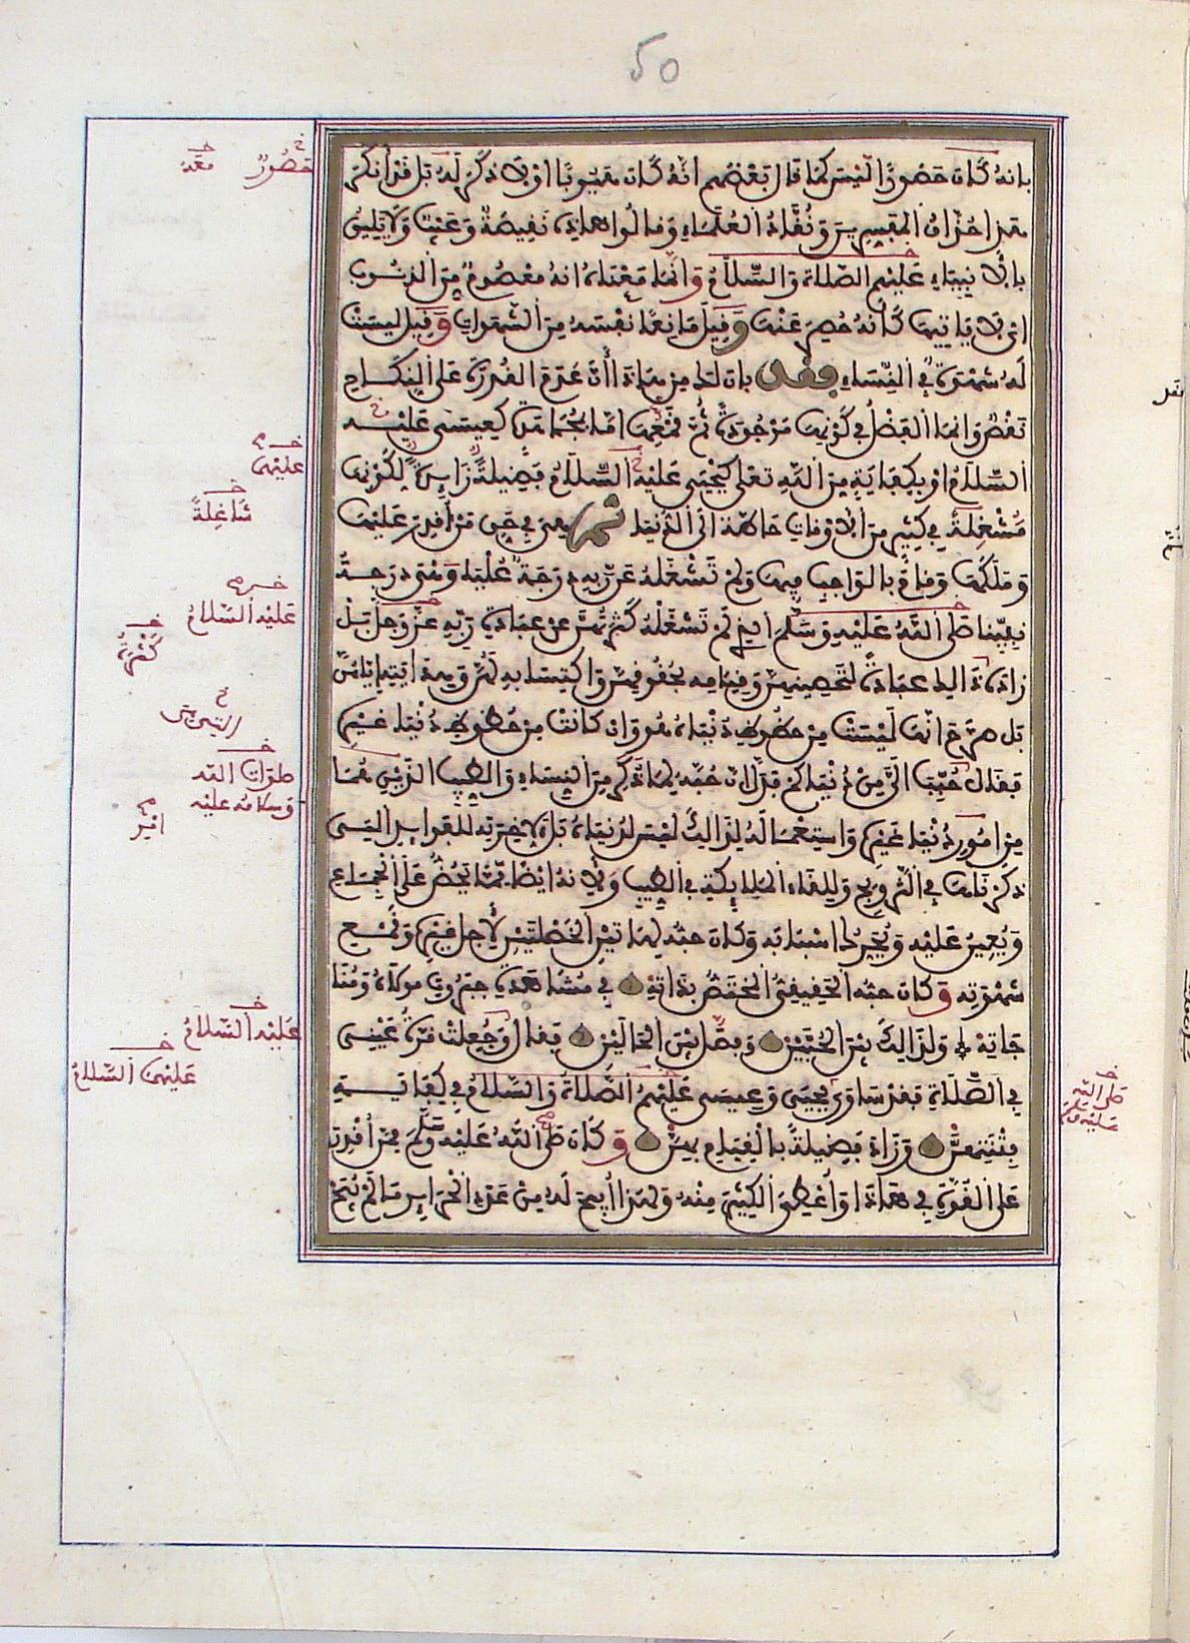 50
بانه كان حصورا ليس كما قال بعضهم انه كان هيوبا او لا ذكر له بل قد انكر
هذا حذاق المفسرين ونقاد العلماء وقالوا هاذه نقيصة وعيب ولا يليق
بالانبياء عليهم الصلاة والسلام وانما معناه انه معصوم من الذنوب
اي لا ياتيها كانه حصر عنها وقيل مانعا نفسه من الشهوات وقيل ليست
له شهوة في النساء فقد بان لك من هاذا ان عدم القدرة على النكاح
نقص وانما الفضل في كونها موجودة ثم قمعها اما بمجاهدة كعيسى عليه
السلام او بكفاية من الله تعلى كيحيى عليه السلام فضيلة زايدة لكونها
مشغلة في كثير من الاوقات حاطة الى الدنيا ثم هي في حق من اقدر عليها
وملكها وقام بالواجب فيها ولم تشغله عن ربه درجة عليا وهي درجة
نبينا صلى الله عليه وسلم الذي لم تشغله كثرتهن عن عبادة ربه عز وجل بل
زاده ذالك عبادة لتحصينهن وقيامه بحقوقهن واكتسابه لهن وهدايته اياهن
بل صرح انها ليست من حظوظ دنياه هو وان كانت من حظوظ دنيا غيره
فقال حبب الي من دنياكم فدل ان حبه لما ذكر من النساء والطيب الذين هما
من امور دنيا غيره واستعماله لذالك ليس لدنياه بل لاخرته للفوايد التي
ذكرناها في التزويج وللقاء الملايكة في الطيب ولانه ايضا مما يحض على الجماع
ويعين عليه ويحرك اسبابه وكان حبه لهاتين الخصلتين لاجل غيره وقمع
شهوته وكان حبه الحقيقي المختص بذاته في مشاهدة جبروت مولاه ومنا
جاته ولذالك بين الحبين وفصل بين الحالين فقال وجعلت قرة عيني
في الصلاة فقد ساوى يحيى وعيسى عليهم الصلاة والسلام في كفاية
فتنتهن وزاد فضيلة بالقيام بهن وكان صلى الله عليه وسلم ممن اقدر
على القوة في هاذا واعطي الكثير منه ولهذا ابيح له من عدد الحراير ما لم يبح
حصور
معه
عليها
شاغلة
عليه السلام
كثرة
صلوات الله
وسلامه عليه
امر
عليه السلام
عليهما السلام
صلى الله
عليه وسلم